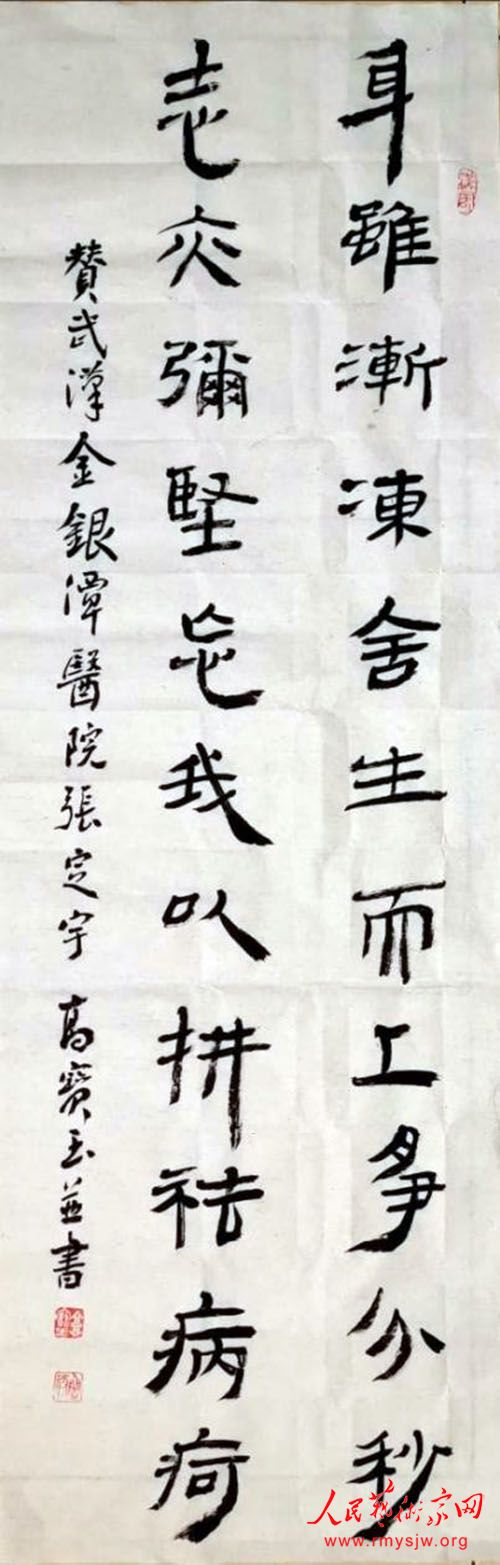 身雖漸凍舍生而上爭分秒
志亦彌堅忘我以拼祛病疴
贊武漢金銀潭醫院張定宇 高寶玉並書
人民藝術家网
www.rmysjw.org